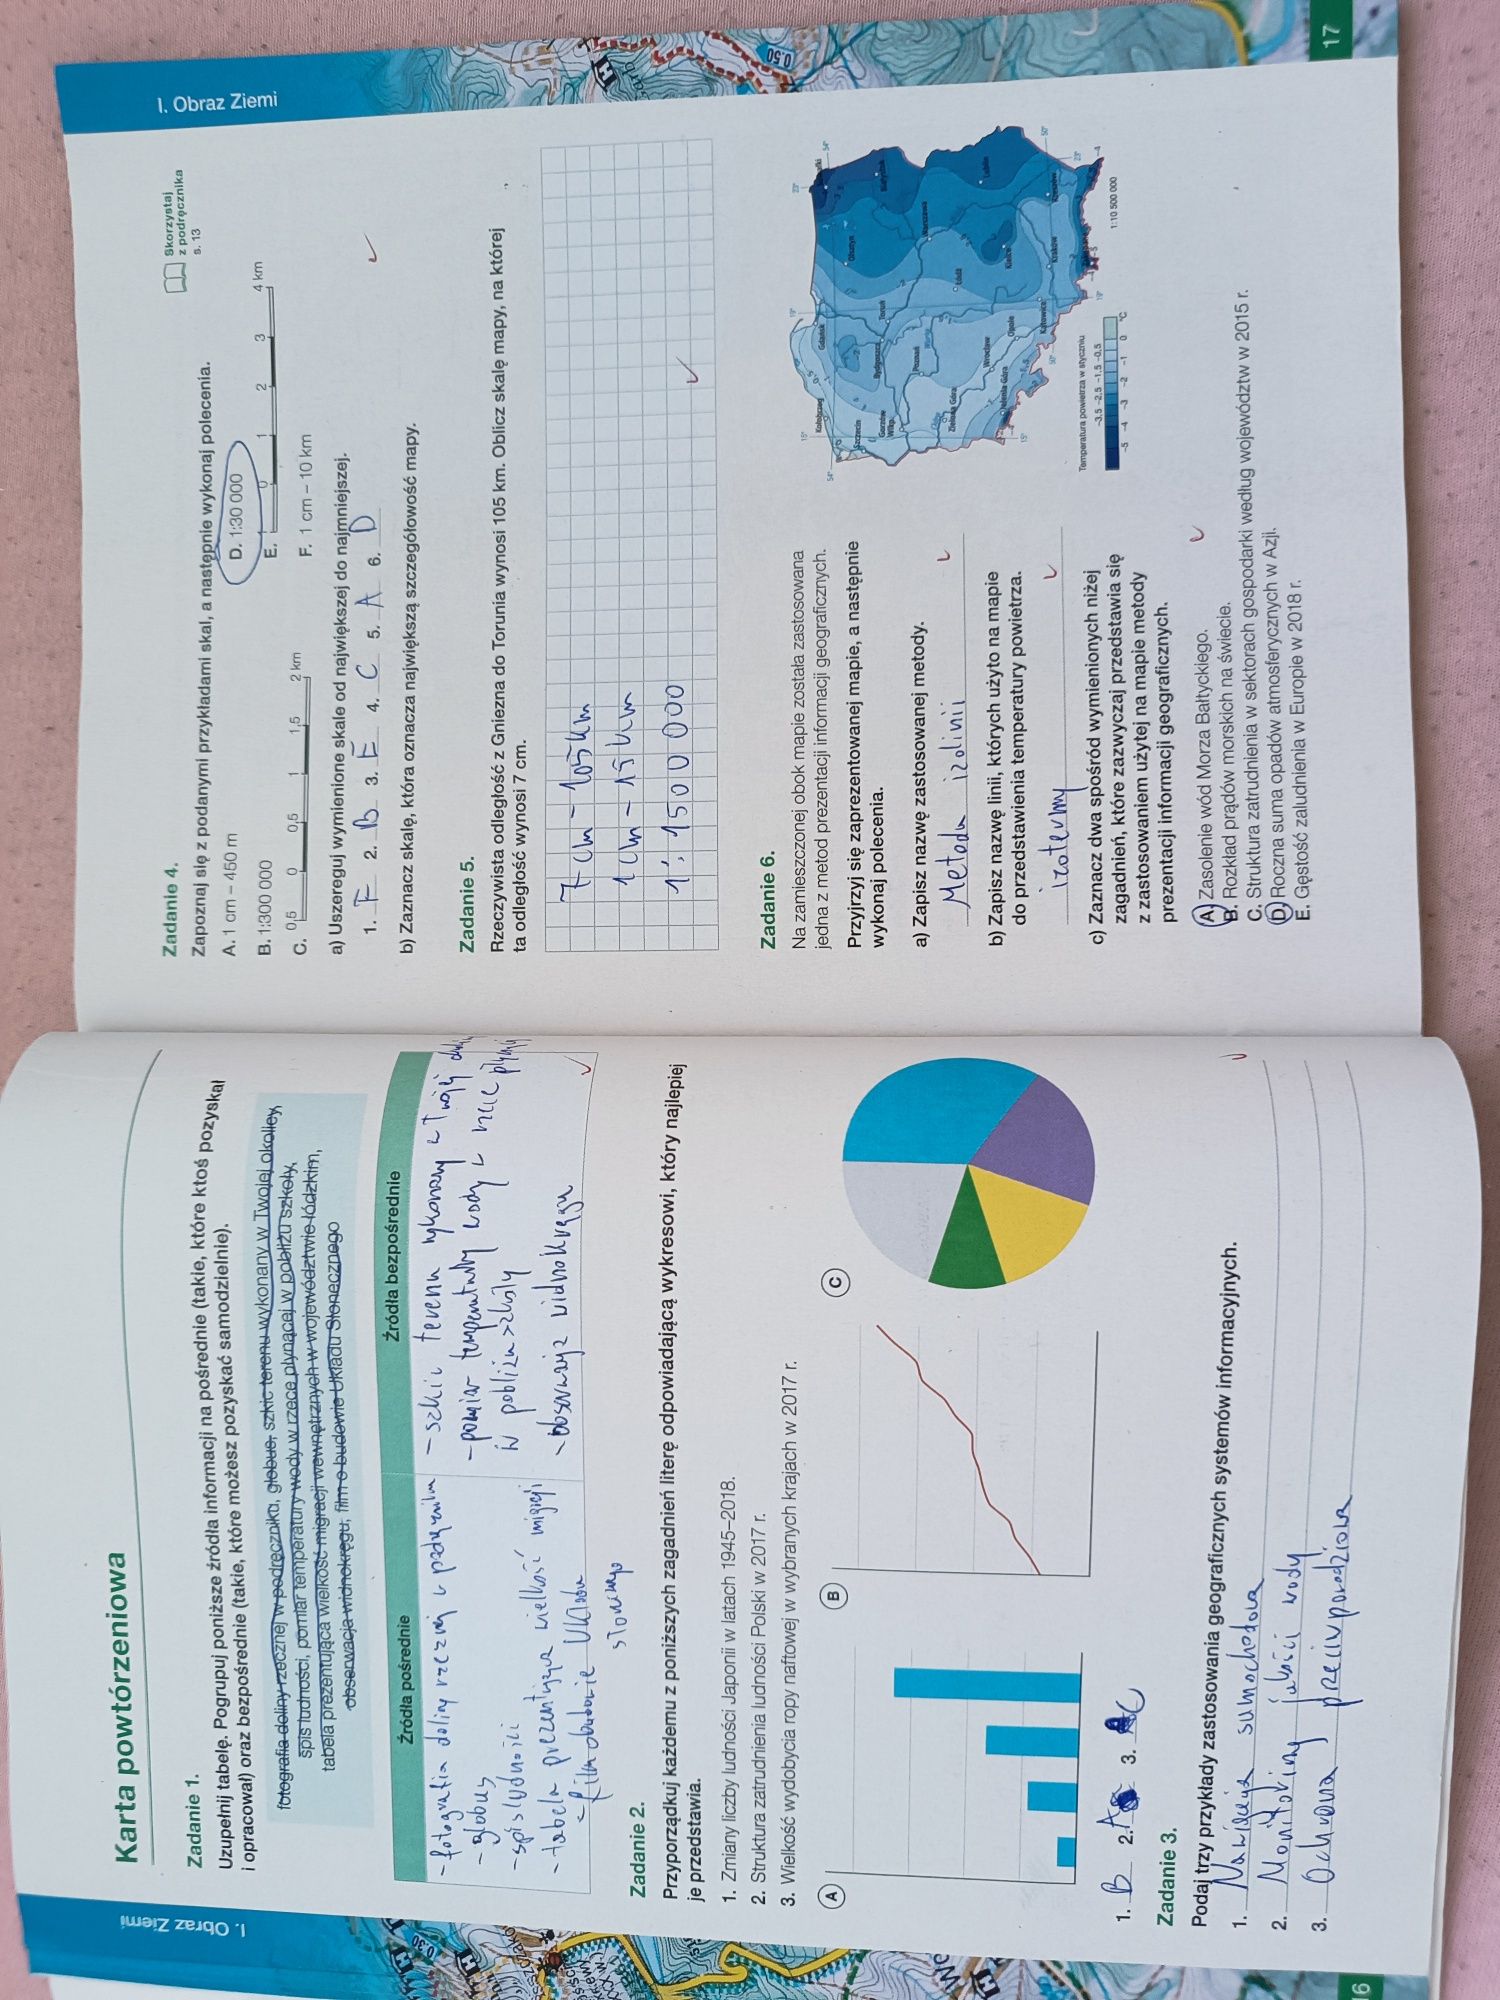 I. Obraz Ziemi
Karta powtórzeniowa
Zadanie 1.
Uzupełnij tabelę. Pogrupuj poniższe źródła informacji na pośrednie (takie, które ktoś pozyskał
i opracował) oraz bezpośrednie (takie, które możesz pozyskać samodzielnie).
fotografia doliny rzecznej w podręczniku, globus, szkic terenu wykonany w Twojej okolicy,
spis ludności, pomiar temperatury wody w rzece płynącej w pobliżu szkoły,
tabela prezentująca wielkość migracji wewnętrznych w województwie łódzkim,
obserwacja widnokręgu, film o budowie Układu Słonecznego
Źródła pośrednie
- fotografia doliny rzecznej w podręczniku
- globus
- spis ludności
- tabela prezentująca wielkość migracji
- film o budowie Układu
Źródła bezpośrednie
- szkic terenu wykonany w Twojej
- pomiar temperatury wody w rzece płynącej
w pobliżu szkoły
- obserwacja widnokręgu
Zadanie 2.
Przyporządkuj każdemu z poniższych zagadnień literę odpowiadającą wykresowi, który najlepiej
je przedstawia.
1. Zmiany liczby ludności Japonii w latach 1945–2018.
2. Struktura zatrudnienia ludności Polski w 2017 r.
3. Wielkość wydobycia ropy naftowej w wybranych krajach w 2017 r.
A B C
1. B 2. A 3. C
Zadanie 3.
Podaj trzy przykłady zastosowania geograficznych systemów informacyjnych.
1. Nawigacja samochodowa
2. Monitoring jakości wody
3. Ochrona przeciwpowodziowa
16
I. Obraz Ziemi
Skorzystaj
z podręcznika
s. 13
Zadanie 4.
Zapoznaj się z podanymi przykładami skal, a następnie wykonaj polecenia.
A. 1 cm – 450 m
D. 1:30 000
B. 1:300 000
E. 1 0 1 2 3 4 km
C. 0,5 0 0,5 1 1,5 2 km
F. 1 cm – 10 km
a) Uszereguj wymienione skale od największej do najmniejszej.
1. F 2. B 3. E 4. C 5. A 6. D
b) Zaznacz skalę, która oznacza największą szczegółowość mapy.
Zadanie 5.
Rzeczywista odległość z Gniezna do Torunia wynosi 105 km. Oblicz skalę mapy, na której
ta odległość wynosi 7 cm.
7 cm - 105 km
1 cm - 15 km
1 : 1500 000
Zadanie 6.
Na zamieszczonej obok mapie została zastosowana
jedna z metod prezentacji informacji geograficznych.
Przyjrzyj się zaprezentowanej mapie, a następnie
wykonaj polecenia.
a) Zapisz nazwę zastosowanej metody.
Metoda izolinii
b) Zapisz nazwę linii, których użyto na mapie
do przedstawienia temperatury powietrza.
izotermy
c) Zaznacz dwa spośród wymienionych niżej
zagadnień, które zazwyczaj przedstawia się
z zastosowaniem użytej na mapie metody
prezentacji informacji geograficznych.
A. Zasolenie wód Morza Bałtyckiego.
B. Rozkład prądów morskich na świecie.
C. Struktura zatrudnienia w sektorach gospodarki według województw w 2015 r.
D. Roczna suma opadów atmosferycznych w Azji.
E. Gęstość zaludnienia w Europie w 2018 r.
Kołobrzeg
Gdańsk
Olsztyn
Szczecin
Gorzów
Wlkp.
Bydgoszcz
Toruń
Białystok
Poznań
Warszawa
Zielona Góra
Łódź
Wrocław
Lublin
Jelenia Góra
Opole
Kielce
Katowice
Kraków
Rzeszów
Temperatura powietrza w styczniu
-3,5 -2,5 -1,5 -0,5
-5 -4 -3 -2 -1 0 °C
1:10 500 000
17